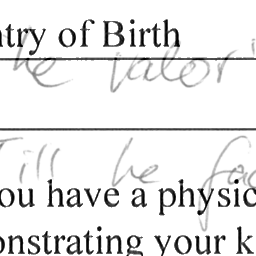 ntry of Birth
he valor
Till he fac
ou have a physic
onstrating your k